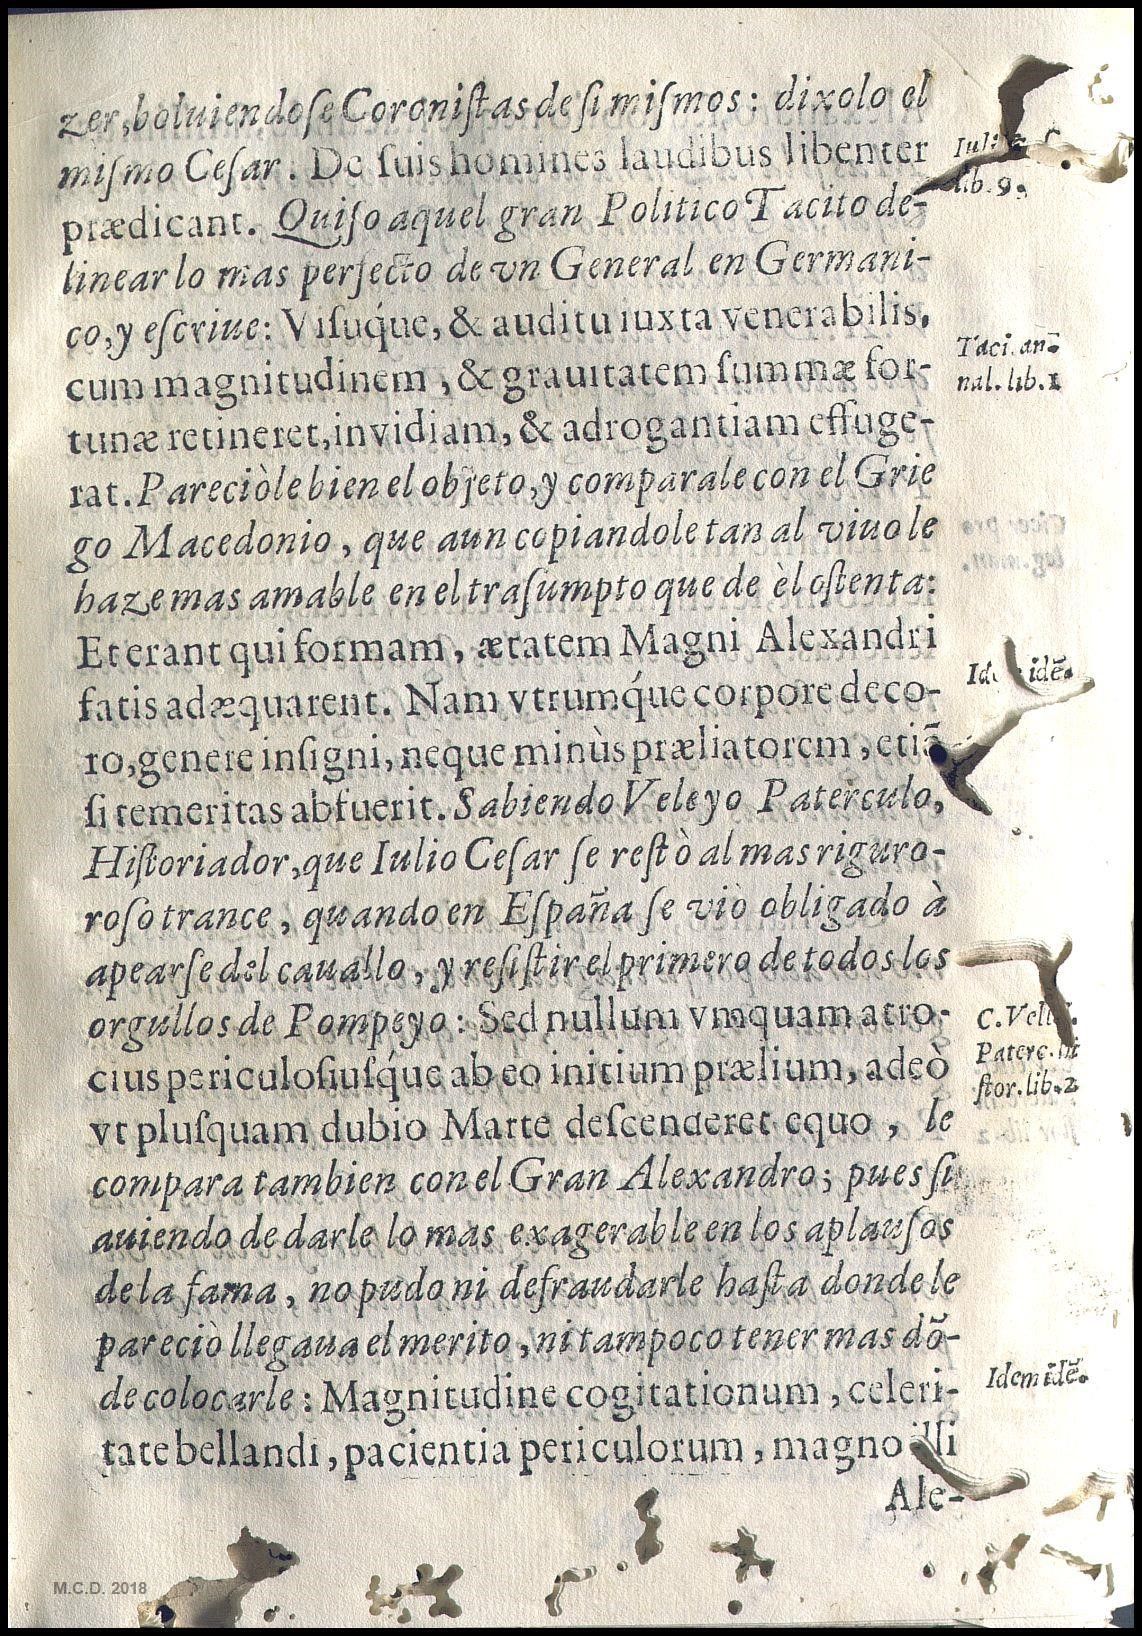 zer, boluiendose Coronistas de si mismos: dixolo el
mismo Cesar. De suis homines laudibus libenter
prædicant. Quiso aquel gran Politico Tacito de-
linear lo mas perfecto de vn General en Germani-
co, y escriue: Visuq́ue, & auditu iuxta venerabilis,
cum magnitudinem, & grauitatem summæ for-
tunæ retineret, invidiam, & adrogantiam effuge-
rat. Pareciòle bien el objeto, y comparale con el Grie
go Macedonio, que aun copiandole tan al viuo le
haze mas amable en el trasumpto que de èl ostenta:
Et erant qui formam, ætatem Magni Alexandri
fatis adæquarent. Nam vtrumq́ue corpore deco-
ro, genere insigni, neque minùs præliatorem, etiã
si temeritas abfuerit. Sabiendo Veleyo Paterculo,
Historiador, que Iulio Cesar se restò al mas riguro-
roso trance, quando en España se viò obligado à
apearse del cauallo, y resistir el primero de todos los
orgullos de Pompeyo: Sed nullum vmquam atro-
cius periculosiusq́ue ab eo initium prælium, adeò
vt plusquam dubio Marte descenderet equo, le
compara tambien con el Gran Alexandro; pues si
auiendo de darle lo mas exagerable en los aplausos
de la fama, no pudo ni defraudarle hasta donde le
pareciò llegaua el merito, ni tampoco tener mas dõ-
de colocarle: Magnitudine cogitationum, celeri-
tate bellandi, pacientia periculorum, magno illi
Ale-
lib. 9.
Taci. an-
nal. lib. 1
idẽ.
C. Velle.
Paterc. hi
stor. lib. 2
Idem idẽ.
M.C.D. 2018